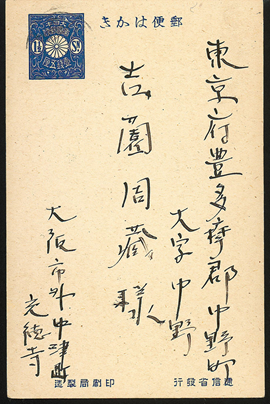 郵便はかき
東京府豊多摩郡中野町
大字中野
吉薗周蔵様
大阪市外中津町
光徳寺
逓信省発行
印刷局製造
1½ Sn